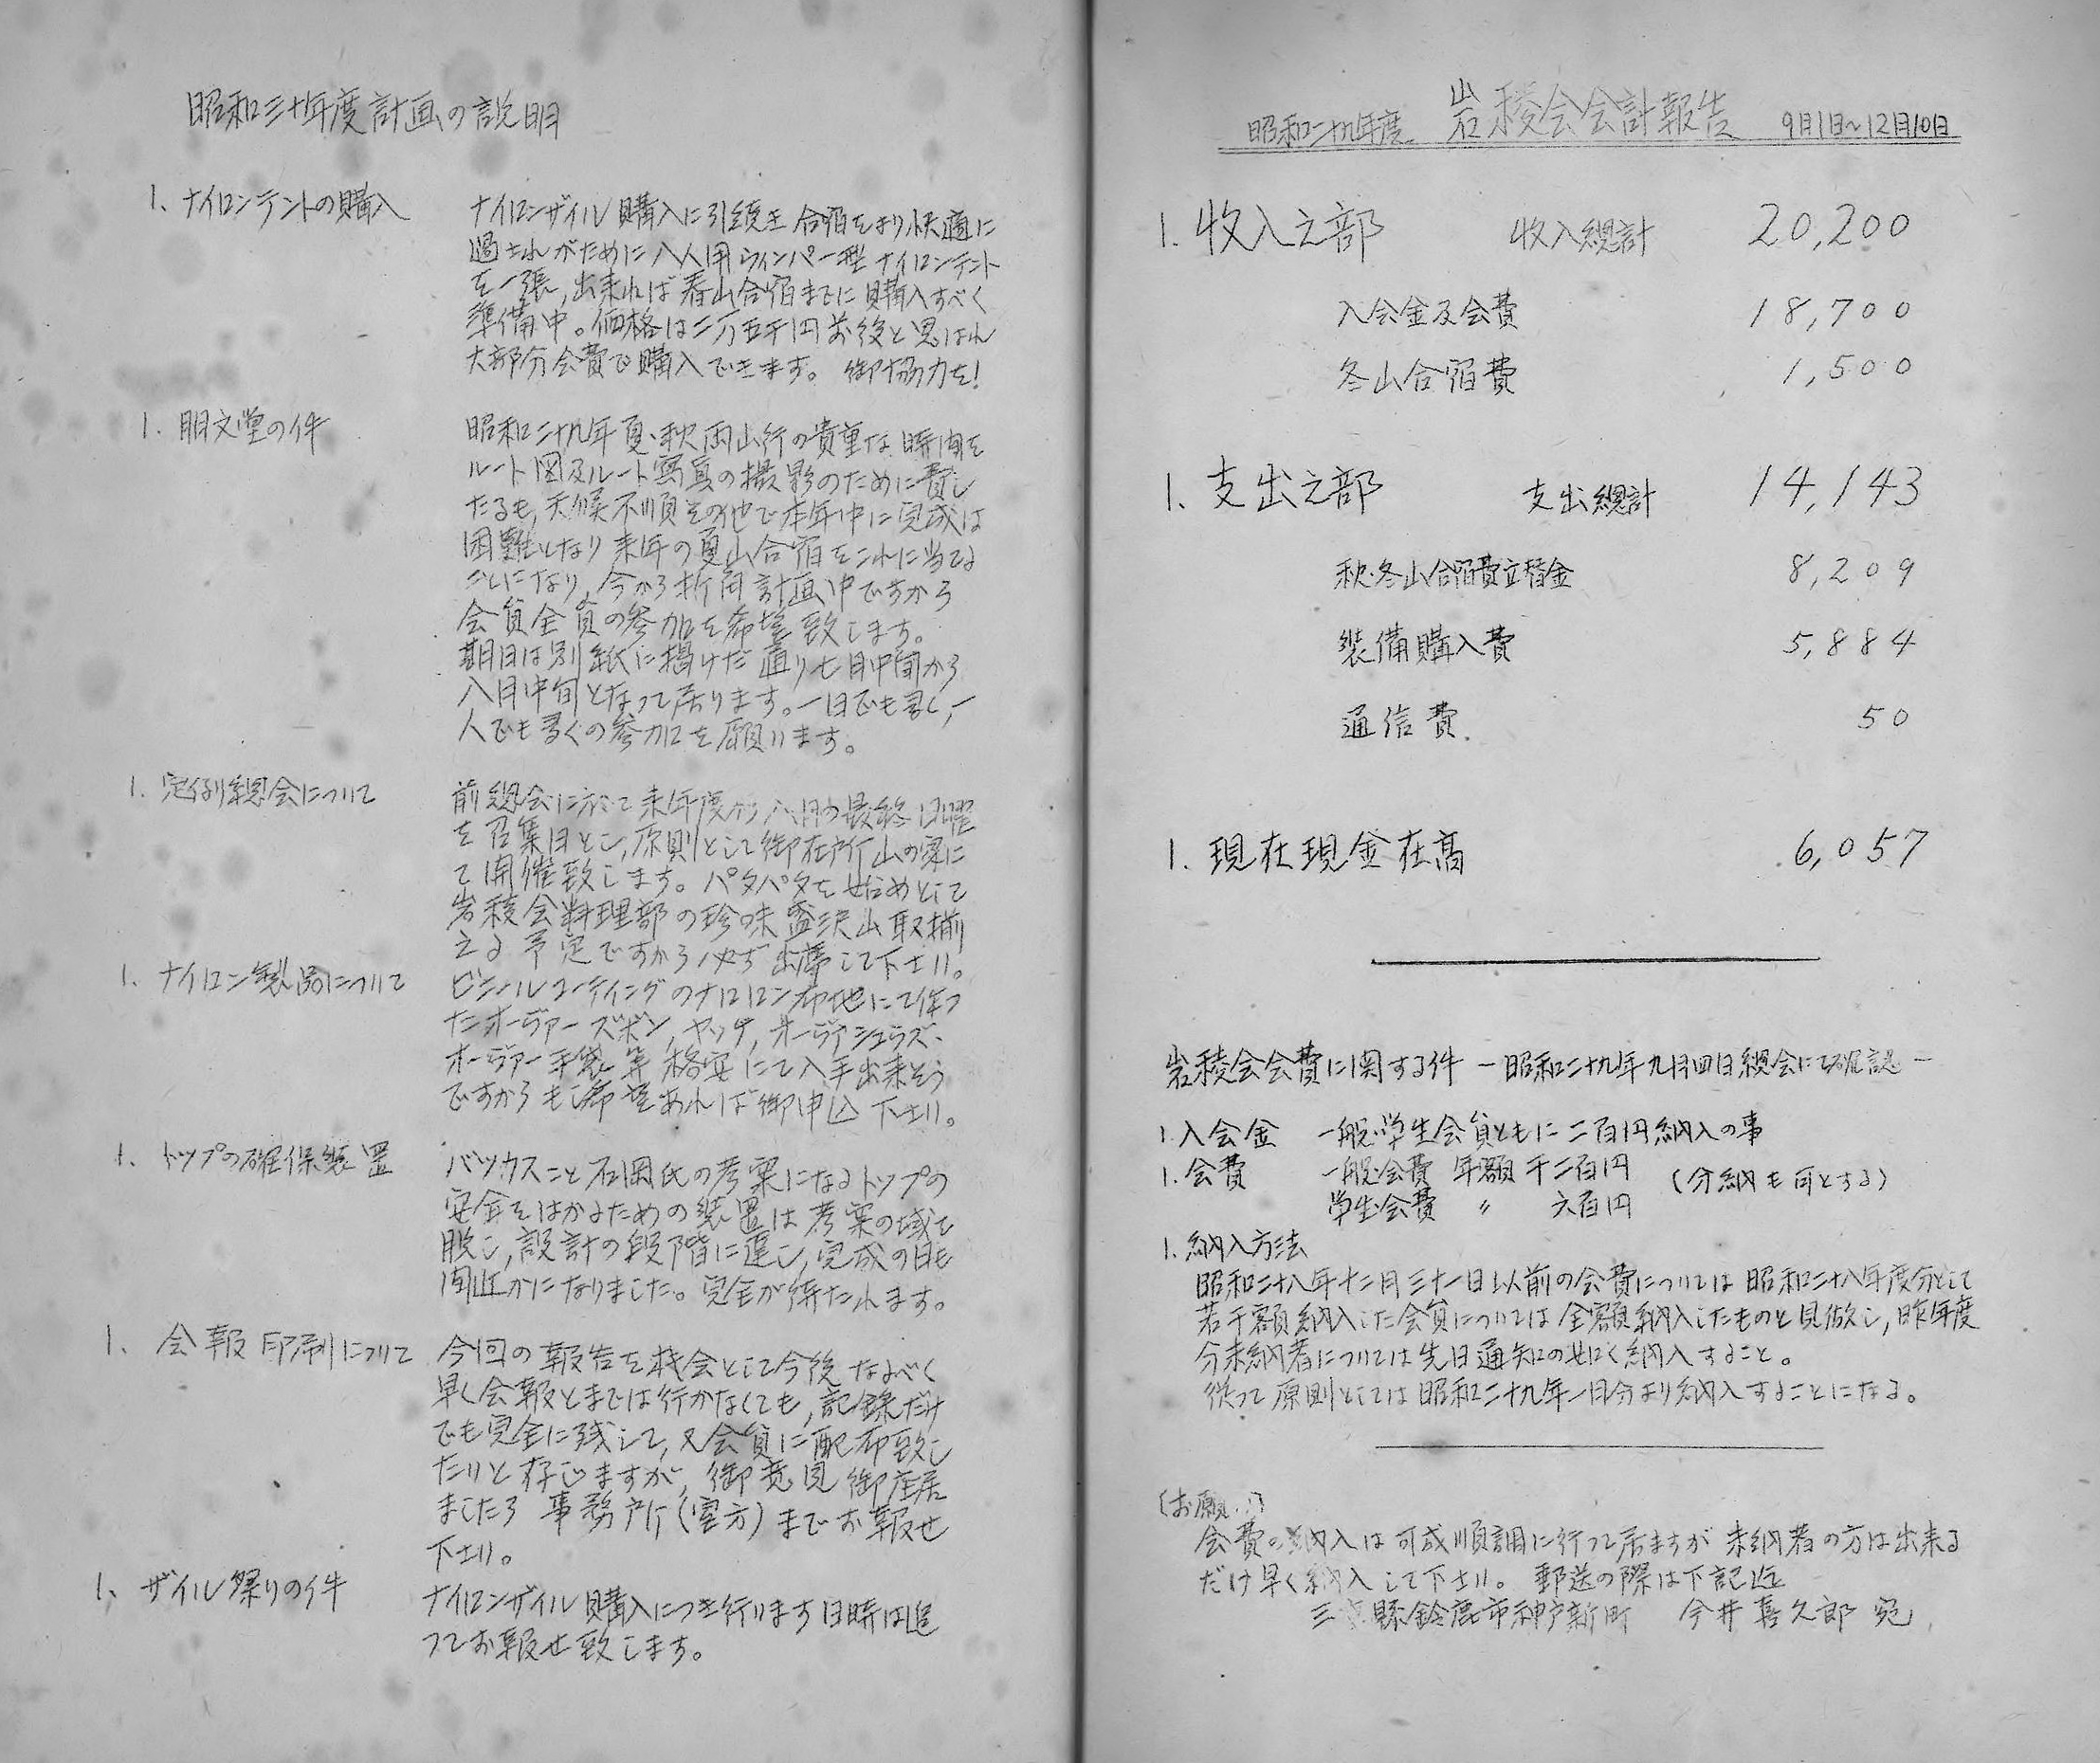 昭和三十年度計画の説明
1. ナイロンテントの購入
ナイロンザイル購入に引続き合宿をより快適に
過されがために八人用ウィンパー型ナイロンテント
を一張,出来れば春山合宿までに購入すべく
準備中。価格は二万五千円前後と思はれ
大部分会費で購入できます。 御協力を!
1. 朋文堂の件
昭和二十九年夏、秋両山行の貴重な時間を
ルート図及ルート写真の撮影のために費し
たるも,天候不順その他で本年中に完成は
困難となり来年の夏山合宿をこれに当てる
ことになり,今から折角計画中ですから
会員全員の参加を希望致します。
期日は別紙に掲げた通り七月中旬から
八月中旬となって居ります。一日でも多く,一
人でも多くの参加を願います。
1. 定例総会について
前総会に於て来年度から八月の最終日曜
を召集日とし,原則として御在所山の家に
て開催致します。パタパタを始めとして
岩稜会料理部の珍味盛沢山取揃
える予定ですから必ず出席して下さい。
1. ナイロン製品について
ビニールコーティングのナイロン布地にて作っ
たオーヴァーズボン,ヤッケ,オーヴァシューズ、
オーヴァー手袋等格安にて入手出来そう
ですからもし希望あれば御申込下さい。
1. トップの確保装置
バッカスこと石岡氏の考案になるトップの
安全をはかるための装置は考案の域を
脱し,設計の段階に達し,完成の日も
間近かになりました。完全が待たれます。
1. 会報印刷について
今回の報告を機会として今後なるべく
早く会報とまでは行かなくても,記録だけ
でも完全に残して,又会員に配布致し
たいと存じますが,御意見御座居
ましたら事務所(室方)までお報せ
下さい。
1. ザイル祭りの件
ナイロンザイル購入につき行います日時は追
ってお報せ致します。
昭和二十九年度 岩稜会会計報告 9月1日~12月10日
1. 収入之部 収入総計 20,200
入会金及会費 18,700
冬山合宿費 1,500
1. 支出之部 支出総計 14,143
秋・冬山合宿費立替金 8,209
装備購入費 5,884
通信費. 50
1. 現在現金在高 6,057
岩稜会会費に関する件 ー昭和二十九年九月四日総会にて確認ー
1. 入会金 一般・学生会員ともに二百円納入の事
1. 会費 一般会費 年額 千二百円 (分納も可とする)
学生会費 〃 六百円
1. 納入方法
昭和二十八年十二月三十一日以前の会費については昭和二十八年度分として
若干額納入した会員については全額納入したものと見做し,昨年度
分未納者については先日通知の如く納入すること。
従って原則としては昭和二十九年一月分より納入することになる。
(お願い)
会費の納入は可成順調に行って居ますが未納者の方は出来る
だけ早く納入して下さい。 郵送の際は下記迄
三重縣鈴鹿市神戸新町 今井喜久郎 宛